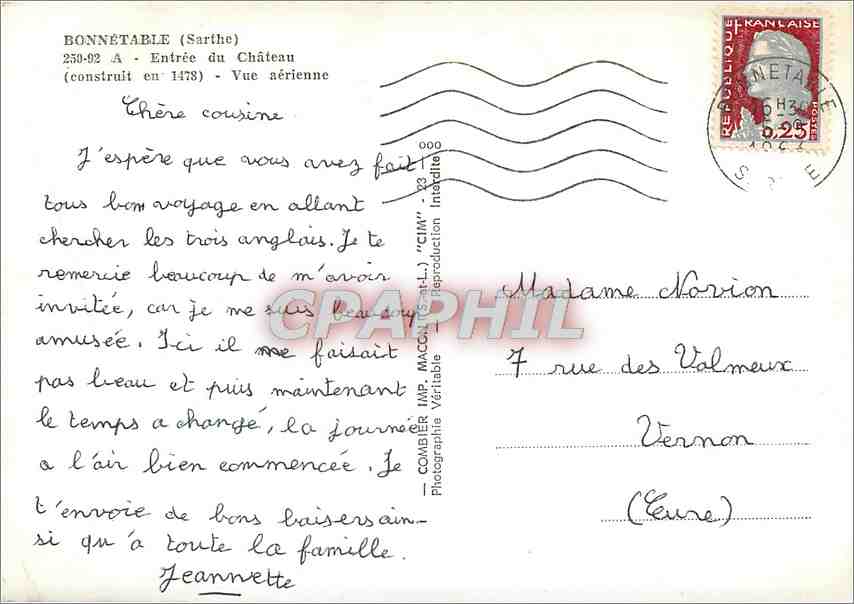 BONNÉTABLE (Sarthe)
250-92 A - Entrée du Château
(construit en 1478) - Vue aérienne
Chère cousine
J'espère que vous avez fait
tous bon voyage en allant
chercher les trois anglais. Je te
remercie beaucoup de m'avoir
invitée, car je me suis beaucoup
amusée. Ici il ne faisait
pas beau et puis maintenant
le temps a changé, la journée
a l'air bien commencée. Je
t'envoie de bons baisers ain-
si qu'à toute la famille.
Jeannette
— COMBIER IMP. MACON (S.-et-L.) "CIM" - 23
Photographie Véritable - Reproduction Interdite
000
REPUBLIQUE FRANÇAISE
POSTES
0,25
BONNETABLE
Madame Norion
7 rue des Valmeux
Vernon
(Eure)
CPAPHIL